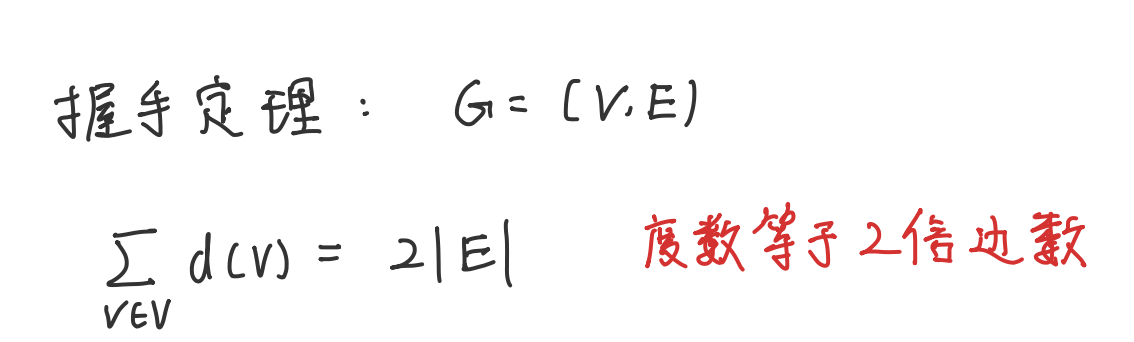 握手定理： G = (V, E)
∑_{v∈V} d(v) = 2|E| 度数等于2倍边数